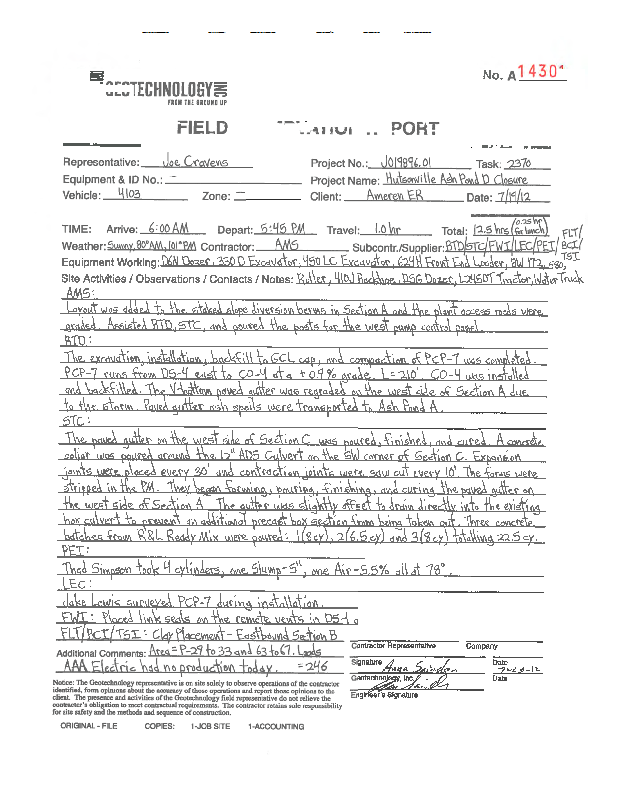 No. A 1430
GEOTECHNOLOGY INC
FROM THE GROUND UP
FIELD PORT
Representative: Joe Cravens Project No.: J019896.01 Task: 2370
Equipment & ID No.: - Project Name: Hutsonville Ash Pond D Closure
Vehicle: 4103 Zone: - Client: Ameren ER Date: 7/19/12
TIME: Arrive: 6:00 AM Depart: 5:45 PM Travel: 1.0 hr Total: 12.5 hrs (0.25 hr for lunch)
Weather: Sunny, 80° AM, 101° PM Contractor: AMS Subcontr./Supplier: BTD/STC/FWI/LEC/PEI/FLT/BCI/TSI
Equipment Working: D6N Dozer, 330 D Excavator, 450 LC Excavator, 624H Front End Loader, BW 172
Site Activities / Observations / Contacts / Notes: Roller, 410J Backhoe, D5G Dozer, LX450T Tractor, Water Truck
AMS:
Layout was added to the staked slope diversion berms in Section A and the plant access roads were
graded. Assisted BTD, STC, and poured the posts for the west pump control panel.
BTD:
The excavation, installation, backfill to GCL cap, and compaction of PCP-7 was completed.
PCP-7 runs from DS-4 east to CO-4 at a +0.9% grade, L=210'. CO-4 was installed
and backfilled. The V-bottom paved gutter was regraded on the west side of Section A due
to the storm. Paved gutter ash spoils were transported to Ash Pond A.
STC:
The paved gutter on the west side of Section C was poured, finished, and cured. A concrete
collar was poured around the 12" ADS Culvert on the SW corner of Section C. Expansion
joints were placed every 30' and contraction joints were saw cut every 10'. The forms were
stripped in the PM. They began forming, pouring, finishing, and curing the paved gutter on
the west side of Section A. The gutter was slightly offset to drain directly into the existing
box culvert to prevent an additional precast box section from being taken out. Three concrete
batches from R&L Ready Mix were poured: 1(8cy), 2(6.5cy) and 3(8cy) totalling 22.5 cy.
PEI:
Thad Simpson took 4 cylinders, one Slump-5", one Air-5.5% all at 78°.
LEC:
Jake Lewis surveyed PCP-7 during installation.
FWI: Placed link seals on the remote vents in DS-1.
FLT/BCI/TSI: Clay Placement - Eastbound Section B
Additional Comments: Area = P-29 to 33 and 63 to 67. Loads
AAA Electric had no production today. = 246
Contractor Representative Company
Signature Date
Geotechnology, Inc. Date
Engineer's Signature
Notice: The Geotechnology representative is on site solely to observe operations of the contractor
identified, form opinions about the adequacy of those operations and report those opinions to the
client. The presence and activities of the Geotechnology field representative do not relieve the
contractor's obligation to meet contractual requirements. The contractor retains sole responsibility
for site safety and the methods and sequence of construction.
ORIGINAL - FILE COPIES: 1-JOB SITE 1-ACCOUNTING